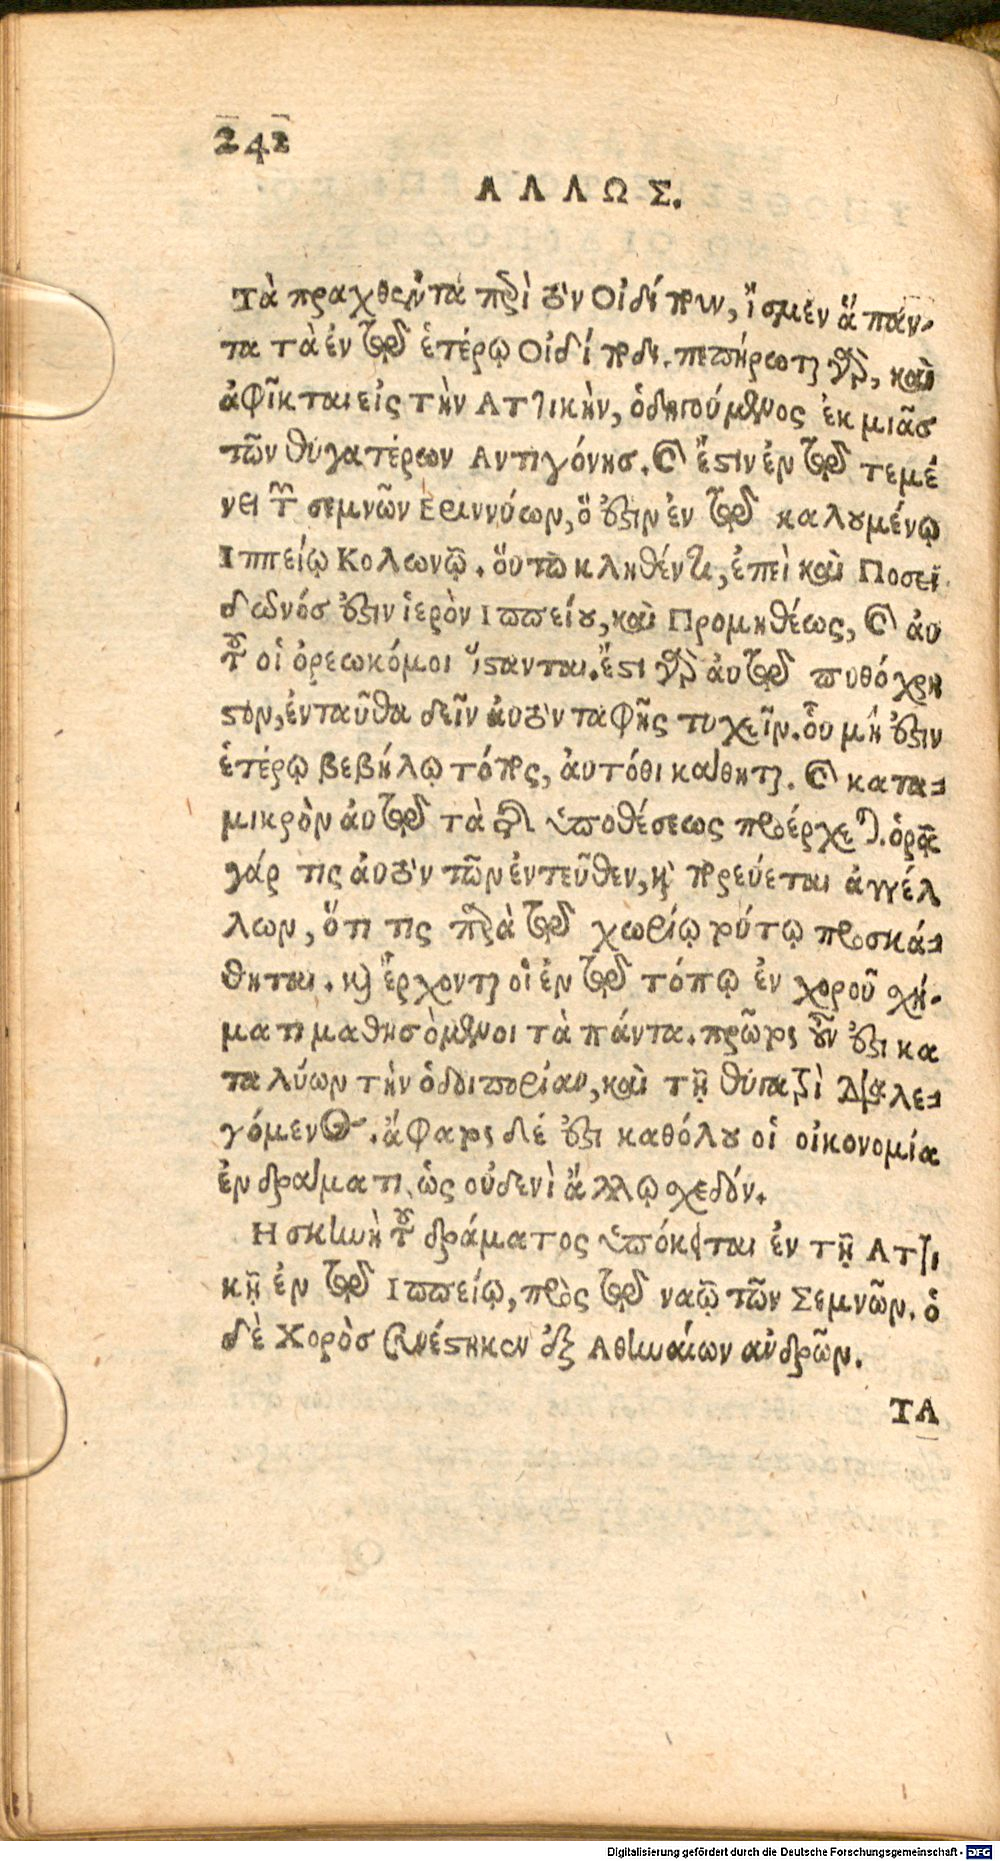 242
ΑΛΛΩΣ.
Τὰ πραχθέντα περὶ τὸν Οἰδίπουν, ἴσμεν ἅπαν-
τα τὰ ἐν τῷ ἑτέρῳ Οἰδίποδι. πεπήρωται γὰρ, καὶ
ἀφῖκται εἰς τὴν Ατλικὴν, ὁδηγούμενος ἐκ μιᾶσ
τῶν θυγατέρων Αντιγόνησ. καὶ ἔστιν ἐν τῷ τεμέ
νει τῶν σεμνῶν Εριννύων, ὅ ἐστιν ἐν τῷ καλουμένῳ
Ιππείῳ Κολωνῷ. ὅυτω κληθέντι, ἐπεὶ καὶ Ποσει
δωνόσ ἐστιν ἱερὸν Ιππείου, καὶ Προμηθέως, καὶ ἀυ
τοῦ οἱ ὀρεωκόμοι ἵστανται. ἔστι γὰρ ἀυτῷ πυθόχρη
στον, ἐνταῦθα δεῖν ἀυτὸν ταφῆς τυχεῖν. ὅυ μή ἐστιν
ἑτέρῳ βεβήλῳ τόπος, ἀυτόθι κάθηται. καὶ κατα-
μικρὸν ἀυτῷ τὰ τῆς ὑποθέσεως προέρχεται. ὁρᾷ
γάρ τις ἀυτὸν τῶν ἐντεῦθεν, καὶ πορεύεται ἀγγέλ
λων, ὅτι τις παρὰ τῷ χωρίῳ τούτῳ προσκά-
θηται. καὶ ἔρχονται οἱ ἐν τῷ τόπῳ ἐν χοροῦ σχή-
ματι μαθησόμενοι τὰ πάντα. πρῶτος οὖν ἐστι κα
ταλύων τὴν ὁδοιπορίαν, καὶ τῇ θυγατρὶ διαλε-
γόμενος. ἄφατος δέ ἐστι καθόλου οἱ οἰκονομία
ἐν δράματι, ὡς οὐδενὶ ἄλλῳ σχεδόν.
Η σκηνὴ τοῦ δράματος ὑπόκειται ἐν τῇ Αττι
κῇ ἐν τῷ Ιππείῳ, πρὸς τῷ ναῷ τῶν Σεμνῶν. ὁ
δὲ Χορὸσ συνέστηκεν ἐξ Αθηναίων ἀνδρῶν.
ΤΑ
Digitalisierung gefördert durch die Deutsche Forschungsgemeinschaft - DFG